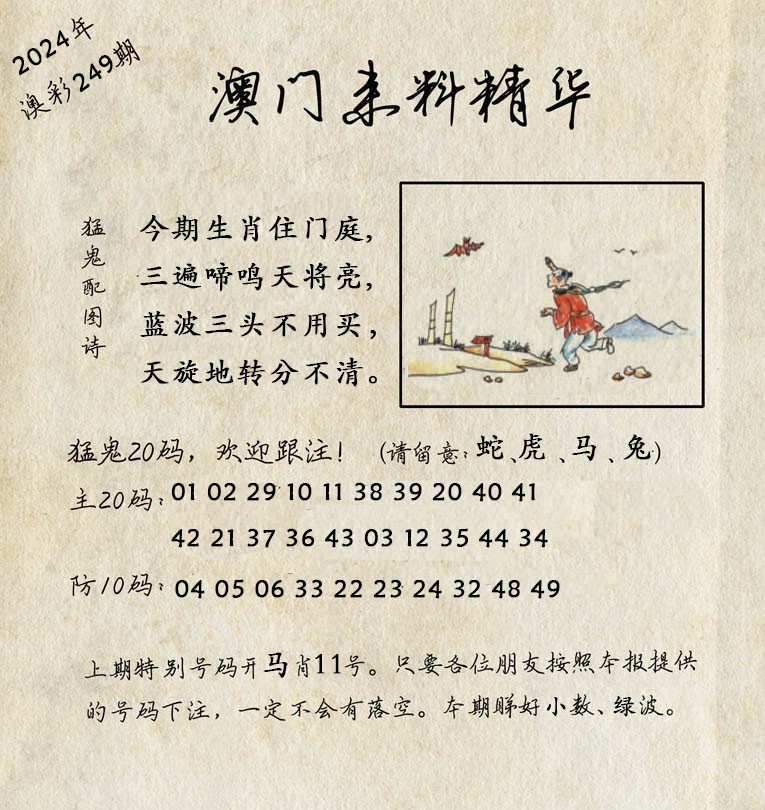 2024年
澳彩249期
澳门来料精华
猛鬼配图诗
今期生肖住门庭，
三遍啼鸣天将亮，
蓝波三头不用买，
天旋地转分不清。
猛鬼20码，欢迎跟注！（请留意：蛇、虎、马、兔）
主20码：01 02 29 10 11 38 39 20 40 41
42 21 37 36 43 03 12 35 44 34
防10码：04 05 06 33 22 23 24 32 48 49
上期特别号码开马肖11号。只要各位朋友按照本报提供
的号码下注，一定不会有落空。本期睇好小数、绿波。